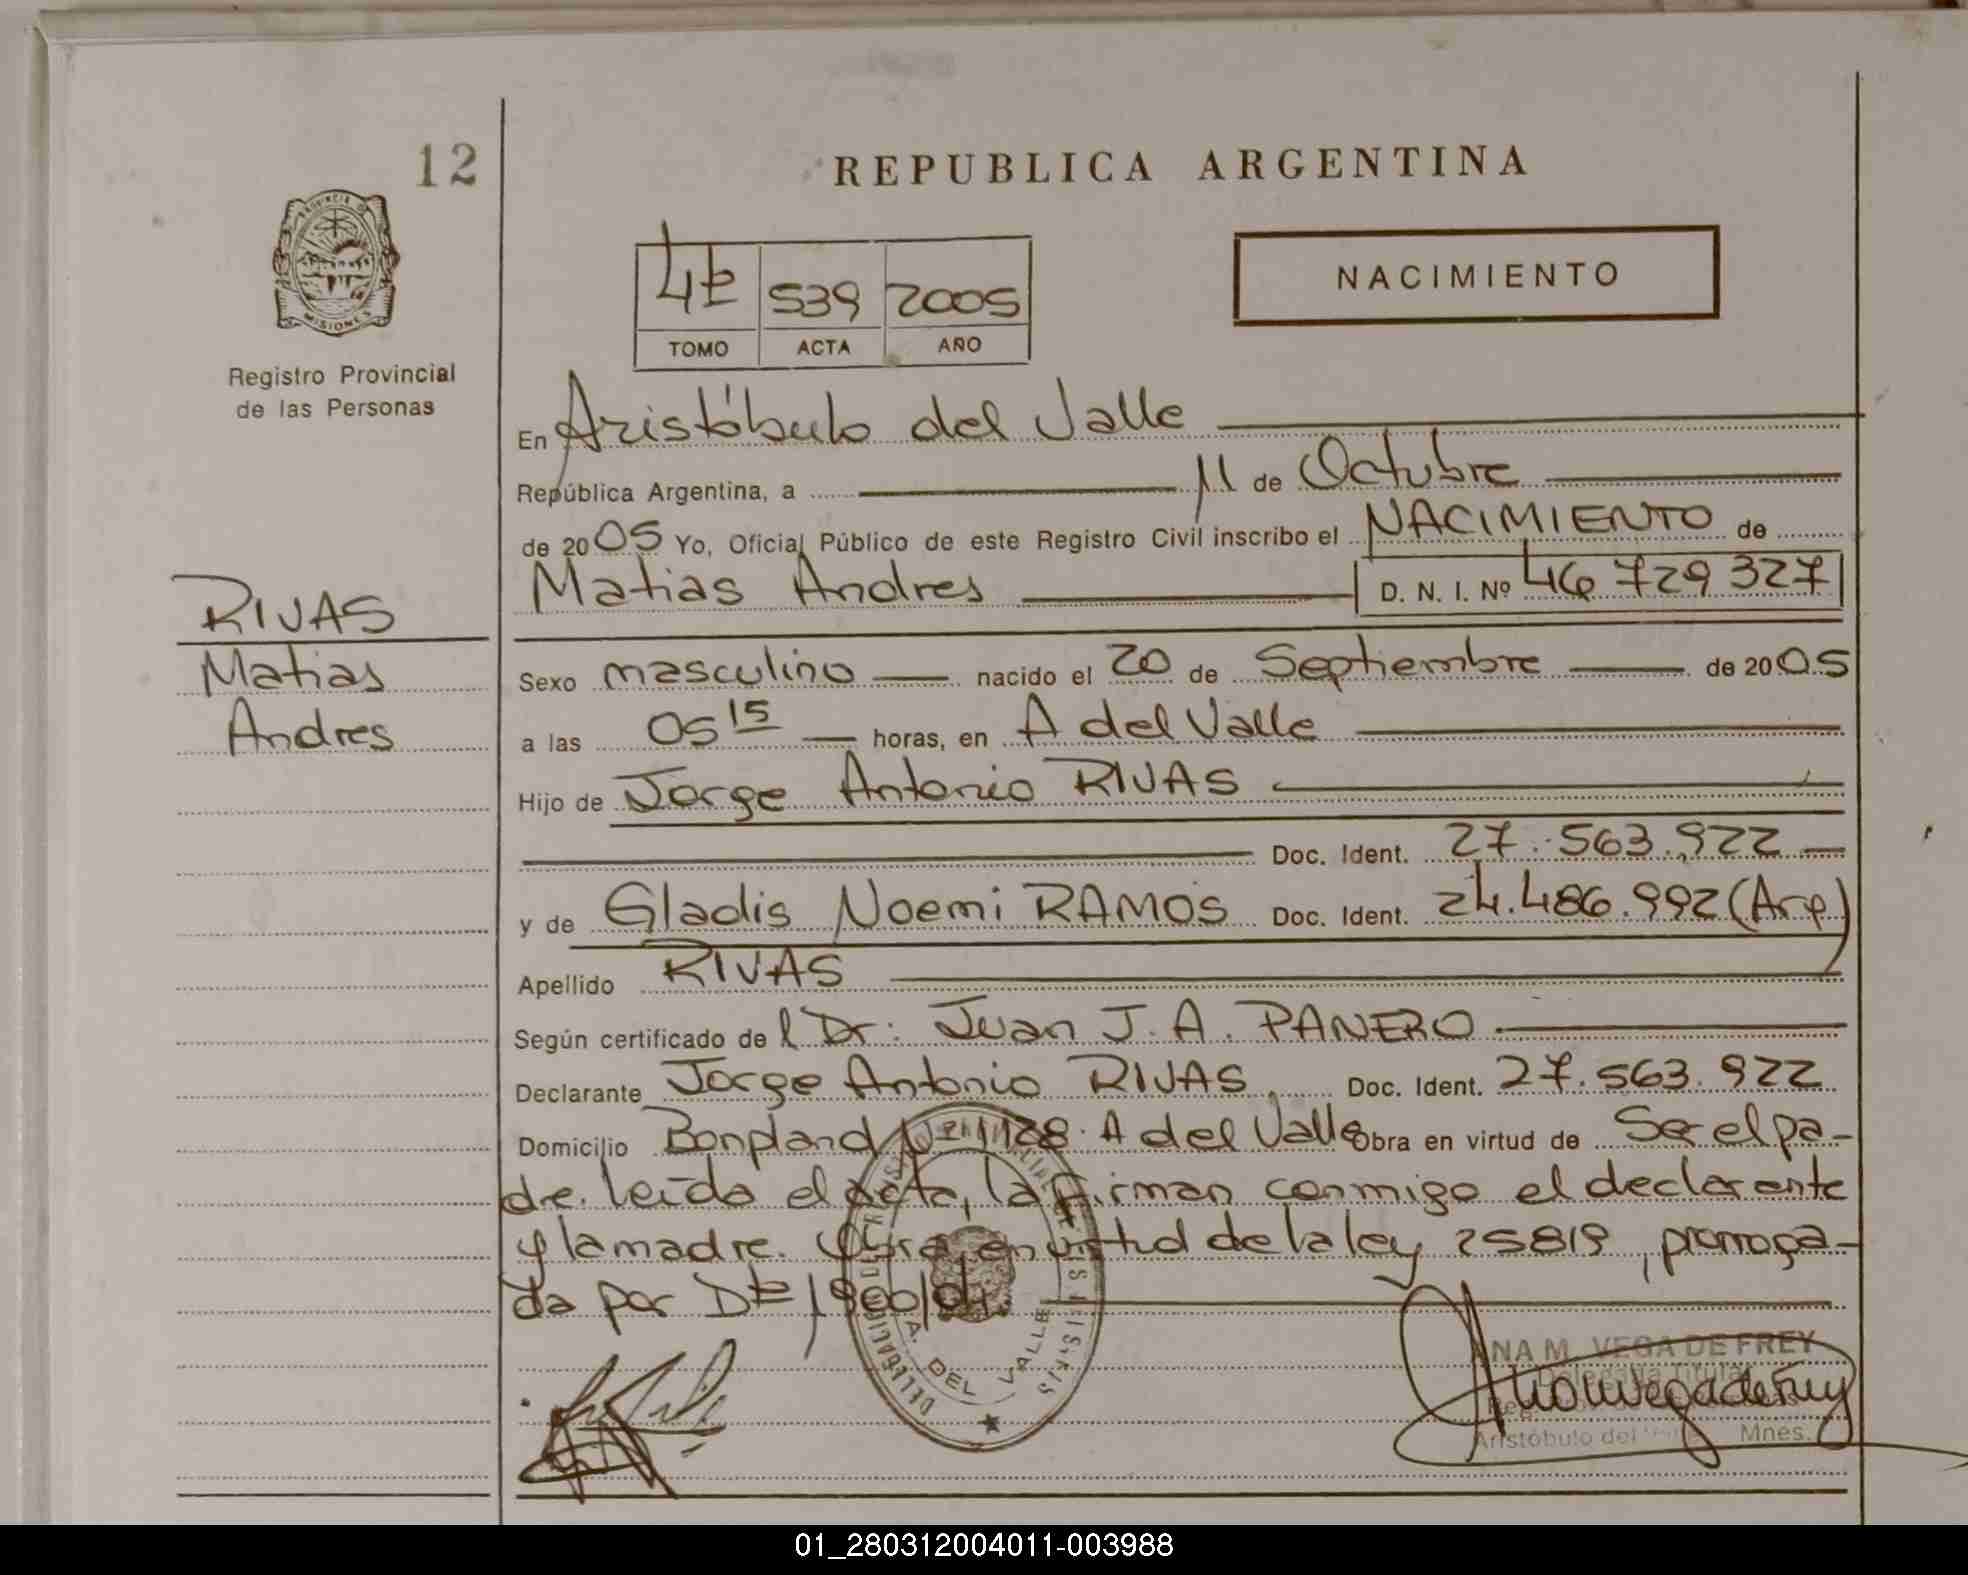 12
REPUBLICA ARGENTINA
PROVINCIA DE
MISIONES
Registro Provincial
de las Personas
4º 539 2005
TOMO ACTA AÑO
NACIMIENTO
En Aristóbulo del Valle
República Argentina, a 11 de Octubre
de 2005 Yo, Oficial Público de este Registro Civil inscribo el NACIMIENTO de
Matias Andres D. N. I. Nº 46 729 327
RIVAS
Matias
Andres
Sexo masculino nacido el 20 de Septiembre de 2005
a las 05 15 horas, en A del Valle
Hijo de Jorge Antonio RIVAS
Doc. Ident. 27.563.922
y de Gladis Noemi RAMOS Doc. Ident. 24.486.992 (Arg)
Apellido RIVAS
Según certificado del Dr: Juan J. A. PANERO
Declarante Jorge Antonio RIVAS Doc. Ident. 27.563.922
Domicilio Bonpland Nº 1128. A del Valle Obra en virtud de Ser el pa-
dre. Leída el acta, la firman conmigo el declarante
y la madre. Obra en virtud de la ley 25819, prorroga-
da por Dto 1900/04
DELEGACION
A. DEL VALLE
ANA M. VEGA DE FREY
Delegada Titular
Aristóbulo del Valle Mnes.
01_280312004011-003988